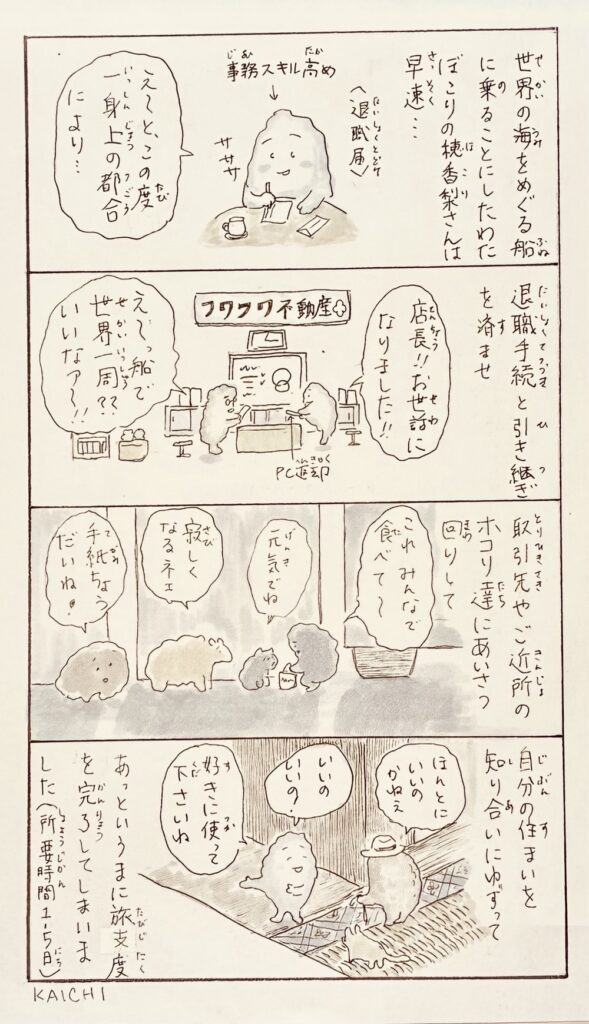 世界の海をめぐる船
に乗ることにしたわた
ぼこりの穂香梨さんは
早速…
〈退職届〉
事務スキル高め
ササササ
え〜と、この度
一身上の都合
により…
退職手続と引き継ぎ
を済ませ
フワフワ不動産
店長!!お世話に
なりました!!
PC返却
え〜っ船で
世界一周??
いいなァ〜!!
取引先やご近所の
ホコリ達にあいさつ
回りして
これみんなで
食べて〜
元気でね
寂しく
なるネェ
手紙ちょう
だいね!
自分の住まいを
知り合いにゆずって
ほんとに
いいの
かねぇ
いいの
いいの?
好きに使って
下さいね
あっというまに旅支度
を完了してしまいま
した(所要時間1.5日)
KAICHI